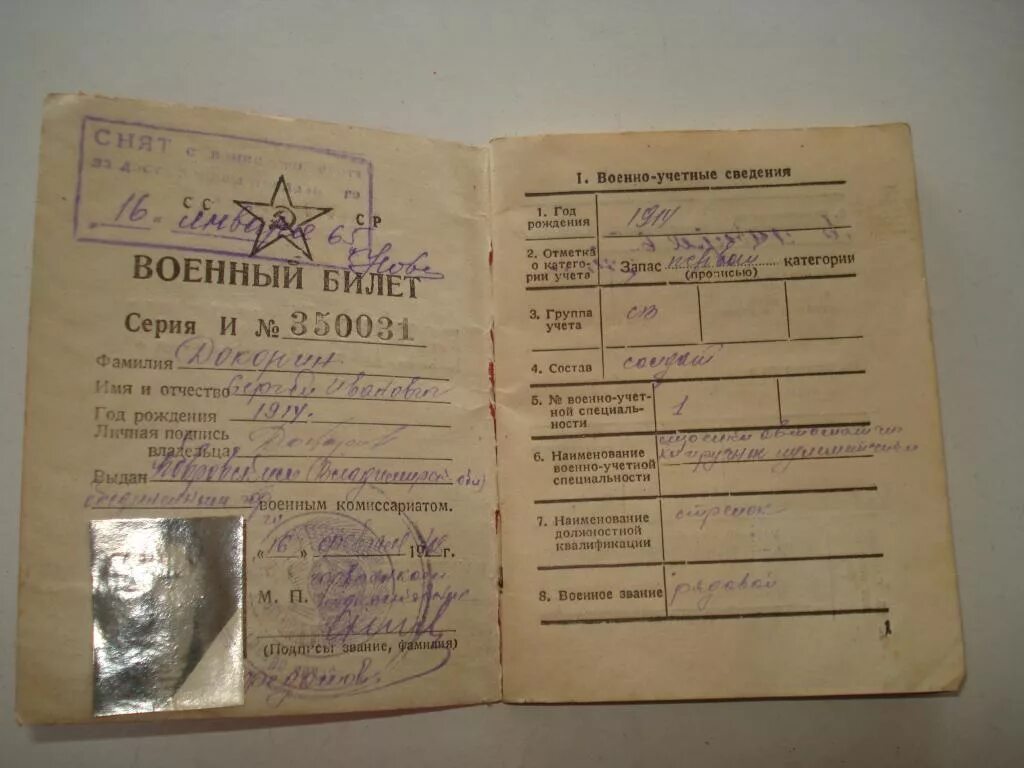 СНЯТ с
за
„16" января 65
СС СР
ВОЕННЫЙ БИЛЕТ
Серия И № 350031
Фамилия Докорин
Имя и отчество Сергей Иванович
Год рождения 1914.
Личная подпись
владельца
Выдан Ковровским Владимирской обл
военным комиссариатом.
„16" февраля 19 г.
М. П.
(Подпись, звание, фамилия)
I. Военно-учетные сведения
1. Год
рождения 1914
2. Отметка
о катего-
рии учета Запас первой категории
(прописью)
3. Группа
учета СВ
4. Состав солдат
5. № военно-учет-
ной специаль-
ности 1
6. Наименование
военно-учетной
специальности
7. Наименование
должностной
квалификации стрелок
8. Военное звание рядовой
1